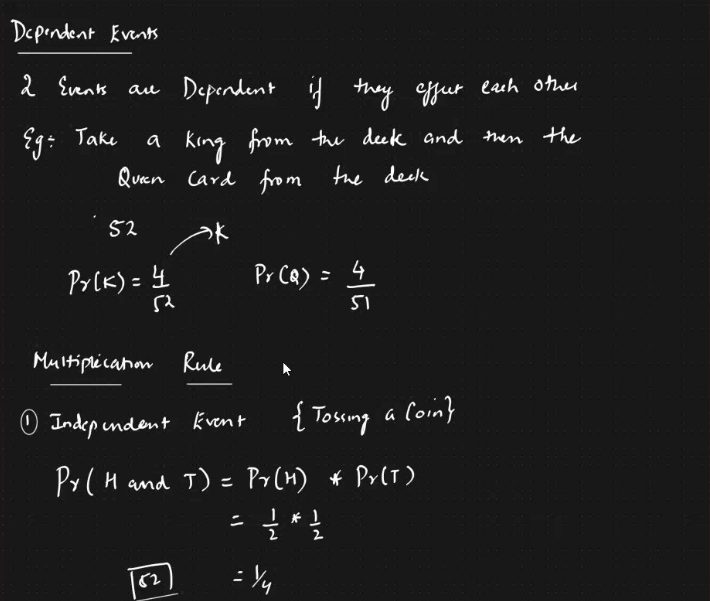 Dependent Events
2 Events are Dependent if they affect each other
Eg:- Take a King from the deck and then the
Queen Card from the deck
52
→ K
Pr(K) = 4/52 Pr(Q) = 4/51
Multiplication Rule
① Independent Event {Tossing a Coin}
Pr(H and T) = Pr(H) * Pr(T)
= 1/2 * 1/2
52 = 1/4